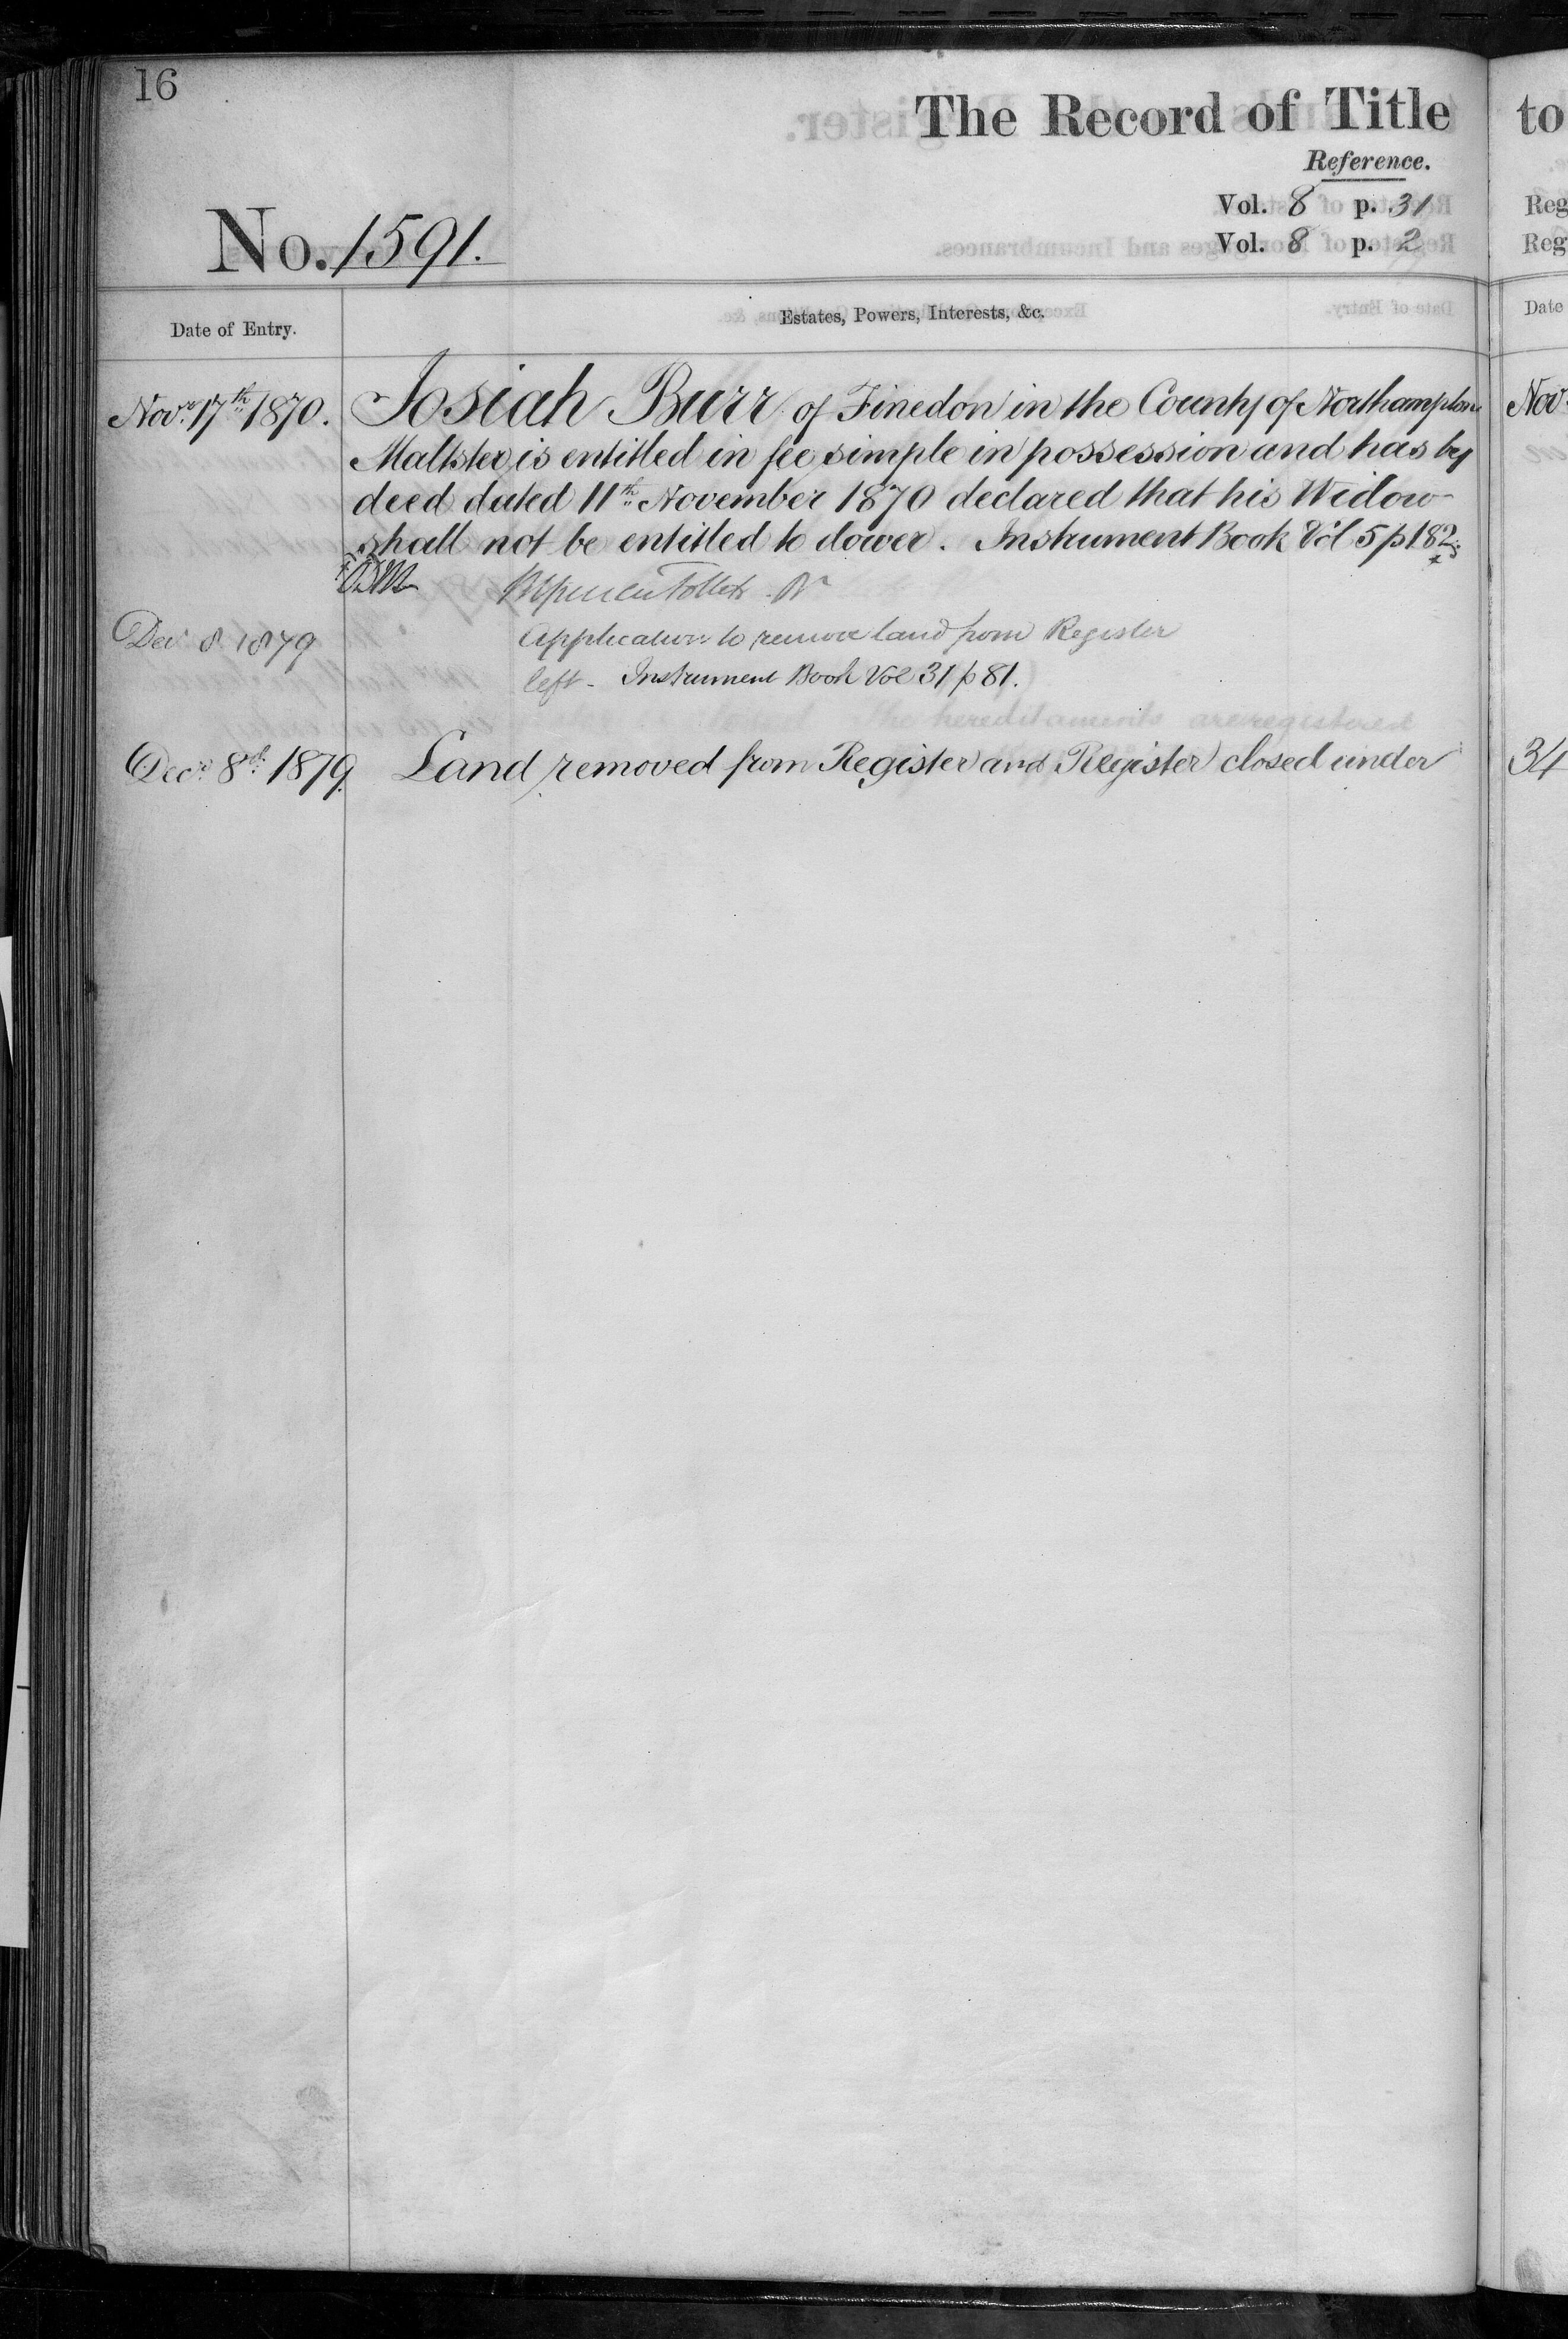 16
The Record of Title
Reference.
Vol. 8 p. 31
Vol. 8 p. 2
No. 1591.
Date of Entry.
Estates, Powers, Interests, &c.
Novr. 17th 1870.
Josiah Burr of Finedon in the County of Northampton
Maltster is entitled in fee simple in possession and has by
deed dated 11th November 1870 declared that his Widow
shall not be entitled to dower. Instrument Book Vol 5 p 182
Decr 8 1879
Application to remove land from Register
left - Instrument Book Vol 31 p 81.
Decr. 8th 1879.
Land removed from Register and Register closed under
to
Reg
Reg
Date
Nov
34